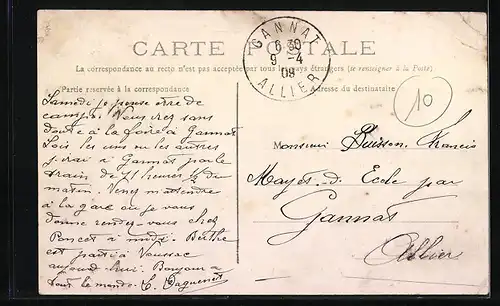 CARTE POSTALE
La correspondance au recto n'est pas acceptée par tous les pays étrangers (se renseigner à la Poste)
Partie réservée à la correspondance
Adresse du destinataire
GANNAT
6 30
9 -4
09
ALLIER
10
Samedi je pense être de
camps. Vous irez sans
doute à la foire à Gannat
Lois les uns ou les autres
j'irai à Gannat par le
train de 11 heures ½ du
matin. Venez m'attendre
à la gare ou je vous
donne rendez-vous chez
Poncet à midi. Berthe
est partie à Vaussac
aujourd'hui. Bonjour à
tous le monde. C. Daguenet
Monsieur Buisson Francis
Mayet-d. Ecole par
Gannat
Allier